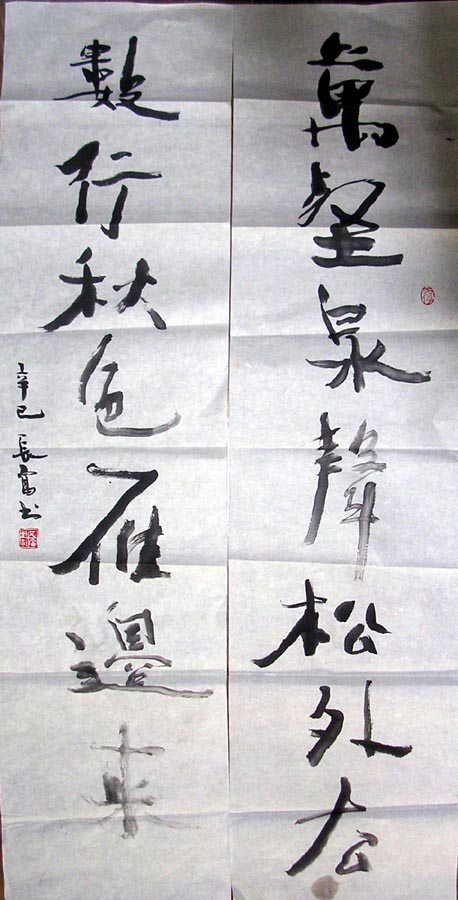 萬壑泉聲松外去
數行秋色雁邊來
辛巳 長富书